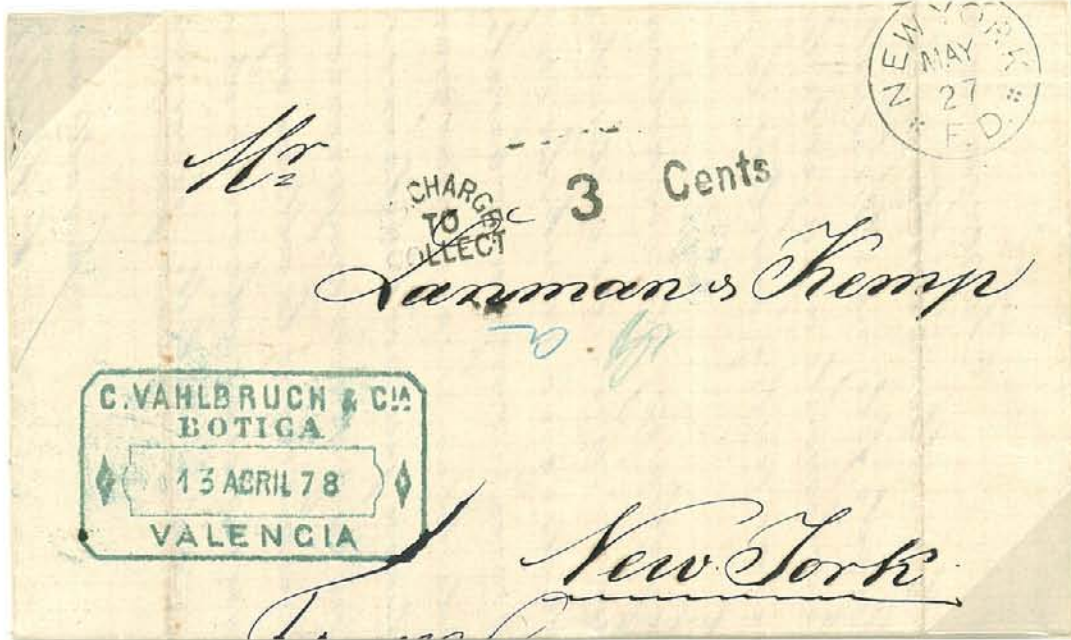 NEW YORK
MAY
27
F.D.
Mr
CHARGE
TO
COLLECT
3 Cents
Lanman & Kemp
C. VAHLBRUCH & CIA
BOTICA
13 ABRIL 78
VALENCIA
New York